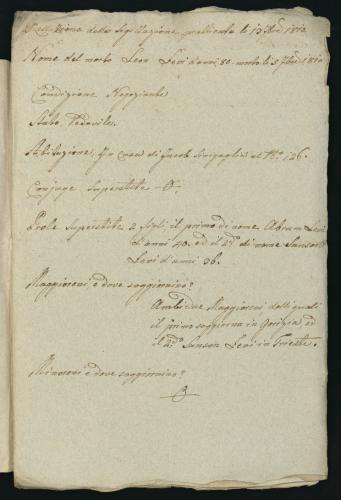 della Sigillazione praticata li 13 1810
Nome del morto Leon Levi d'anni 80. morto li 1810
Condizione Negoziante
Stato. Vedovile.
Abitazione. In casa di Jacob al No. 136.
Conjuge superstite
Prole Superstite 2 figli, il primo di nome Abram Levi
d'anni 40. ed il 2do. di nome Sanson
Levi d'anni 36.
Maggiorenni, e dove soggiornino?
Ambidue Maggiorenni, delli quali
il primo soggiorna in Gorizia ed
il 2do. Sanson Levi in Trieste.
Minorenni e dove soggiornino?